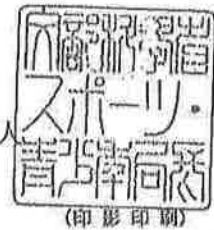 文部科学省
スポーツ・
青少年局長
人
(印影印刷)